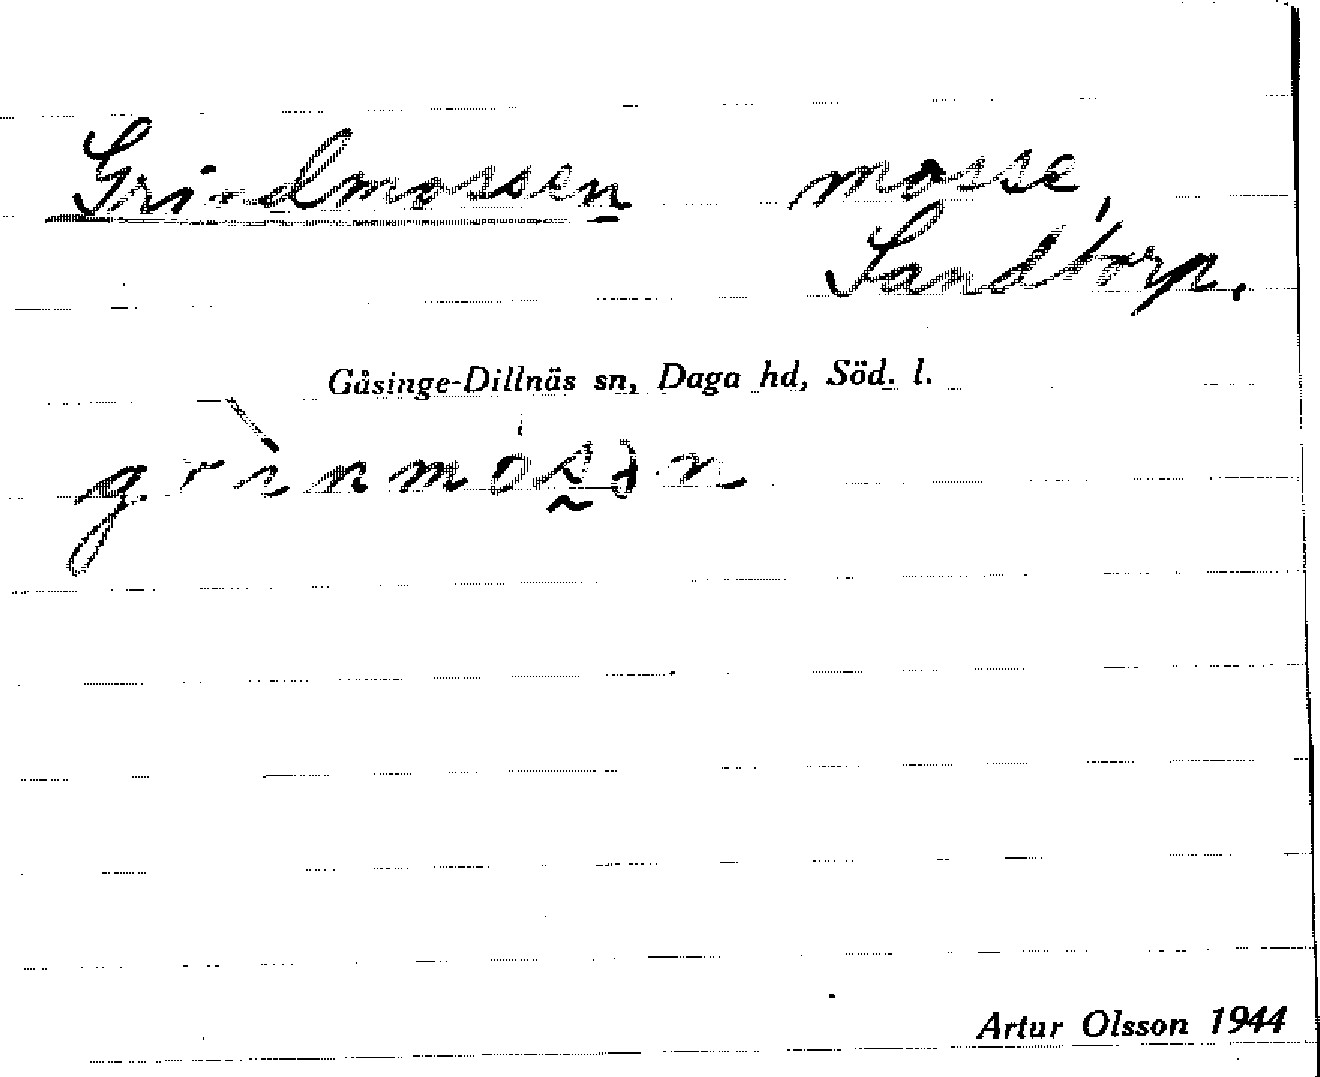 Grindmossen mosse,
Sandtorp.
Gåsinge-Dillnäs sn, Daga hd, Söd. l.
Artur Olsson 1944